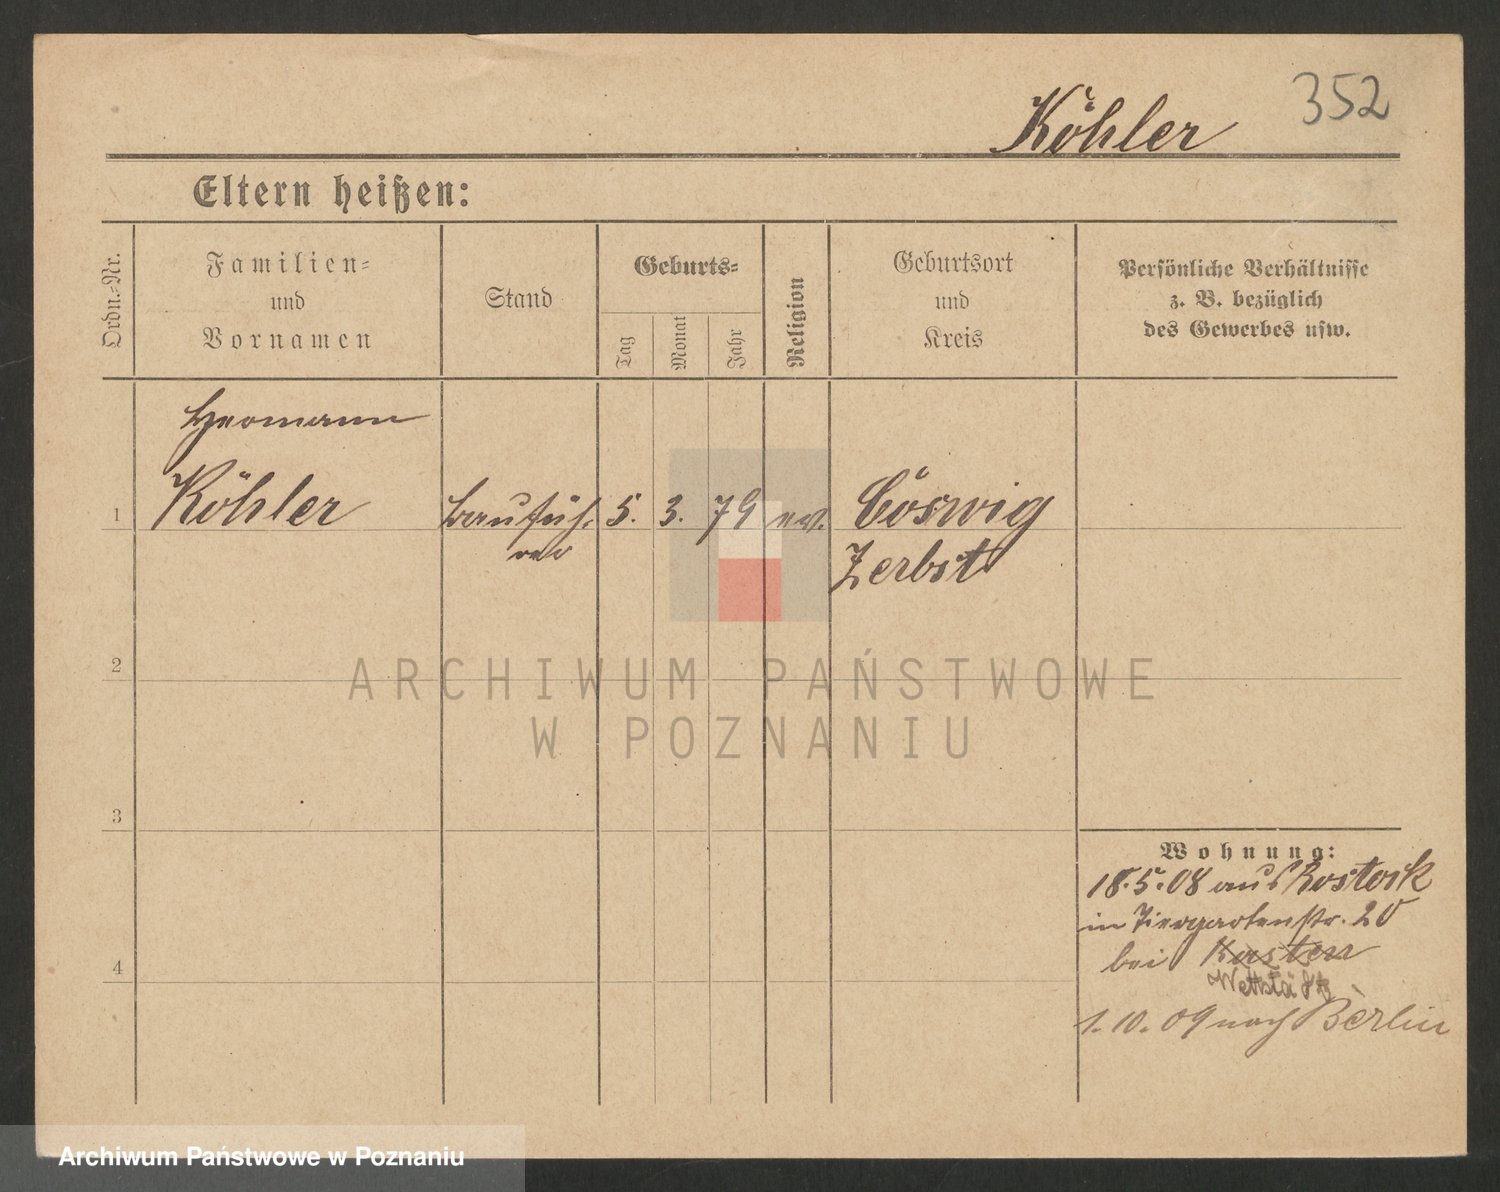 352
Köhler
Eltern heißen:
Ordn.-Nr.
Familien-
und
Vornamen
Stand
Geburts-
Tag
Monat
Jahr
Religion
Geburtsort
und
Kreis
Persönliche Verhältnisse
z. B. bezüglich
des Gewerbes usw.
Hermann
1 Köhler Baufüh- 5. 3. 79 ev. Cöswig
rer Zerbst
2
3
4
Wohnung:
18.5.08 aus Rostock
in Tiergartenstr. 20
bei
1.10.09 nach Berlin
ARCHIWUM PAŃSTWOWE
W POZNANIU
Archiwum Państwowe w Poznaniu